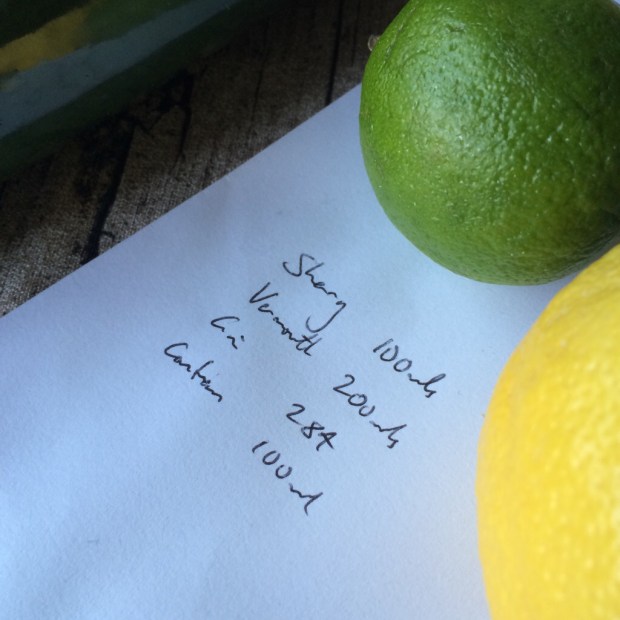 Sherry 100mls
Vermouth 200mls
Gin 284
100ml